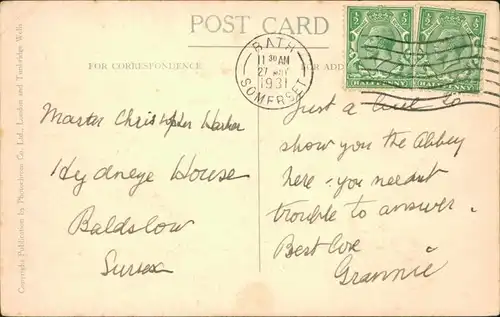 POST CARD
FOR CORRESPONDENCE
FOR ADD
BATH
11 30 AM
27 MAY
1931
SOMERSET
HALFPENNY
HALFPENNY
Master Christopher Harker
Hydneye House
Baldslow
Sussex
Just a line to
show you the Abbey
here - you neednt
trouble to answer.
Best love
Grannie
Copyright Publication by Photochrom Co. Ltd., London and Tunbridge Wells